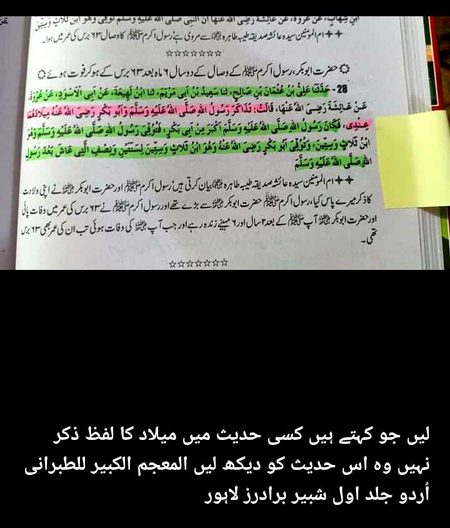 ابْنِ شِهَابٍ، عَنْ عُرْوَةَ، عَنْ عَائِشَةَ أَنَّ النَّبِيَّ صَلَّى اللهُ عَلَيْهِ وَسَلَّمَ تُوُفِّيَ وَهُوَ ابْنُ ثَلَاثٍ وَسِتِّينَ
ام المؤمنین سیدہ عائشہ صدیقہ طیبہ طاہرہ سے مروی ہے رسول اکرم ﷺ کا وصال ۶۳ برس کی عمر میں ہوا۔
حضرت ابوبکر، رسول اکرم ﷺ کے وصال کے دو سال ۶ ماہ بعد ۶۳ برس کے ہو کر فوت ہوئے
28 - حَدَّثَنَا عَلِيُّ بْنُ عُثْمَانَ بْنِ صَالِحٍ، ثنا سَعِيدُ بْنُ أَبِي مَرْيَمَ، ثنا ابْنُ لَهِيعَةَ، عَنْ أَبِي الْأَسْوَدِ، عَنْ عُرْوَةَ
عَنْ عَائِشَةَ رَضِيَ اللهُ عَنْهَا، قَالَتْ: تَذَاكَرَ رَسُولُ اللهِ صَلَّى اللهُ عَلَيْهِ وَسَلَّمَ وَأَبُو بَكْرٍ رَضِيَ اللهُ عَنْهُ مِيلَادَهُمَا
عِنْدِي، فَكَانَ رَسُولُ اللهِ صَلَّى اللهُ عَلَيْهِ وَسَلَّمَ أَكْبَرَ مِنْ أَبِي بَكْرٍ، فَتُوُفِّيَ رَسُولُ اللهِ صَلَّى اللهُ عَلَيْهِ وَسَلَّمَ وَهُوَ
ابْنُ ثَلَاثٍ وَسِتِّينَ، وَتُوُفِّيَ أَبُو بَكْرٍ رَضِيَ اللهُ عَنْهُ وَهُوَ ابْنُ ثَلَاثٍ وَسِتِّينَ لِسَنَتَيْنِ وَنِصْفٍ الَّتِي عَاشَ بَعْدَ رَسُولِ
اللهِ صَلَّى اللهُ عَلَيْهِ وَسَلَّمَ
ام المؤمنین سیدہ عائشہ صدیقہ طیبہ طاہرہ بیان کرتی ہیں: رسول اکرم ﷺ اور حضرت ابوبکر نے اپنی ولادت
کا ذکر میرے پاس کیا، رسول اکرم ﷺ حضرت ابوبکر سے بڑے تھے اور رسول اکرم ﷺ نے ۶۳ برس کی عمر میں وفات پائی
اور حضرت ابوبکر آپ ﷺ کے بعد ۲ سال اور ۶ مہینے زندہ رہے اور جب آپ کی وفات ہوئی تب ان کی عمر بھی ۶۳ برس
تھی۔
لیں جو کہتے ہیں کسی حدیث میں میلاد کا لفظ ذکر
نہیں وہ اس حدیث کو دیکھ لیں المعجم الکبیر للطبرانی
اُردو جلد اول شبیر برادرز لاہور